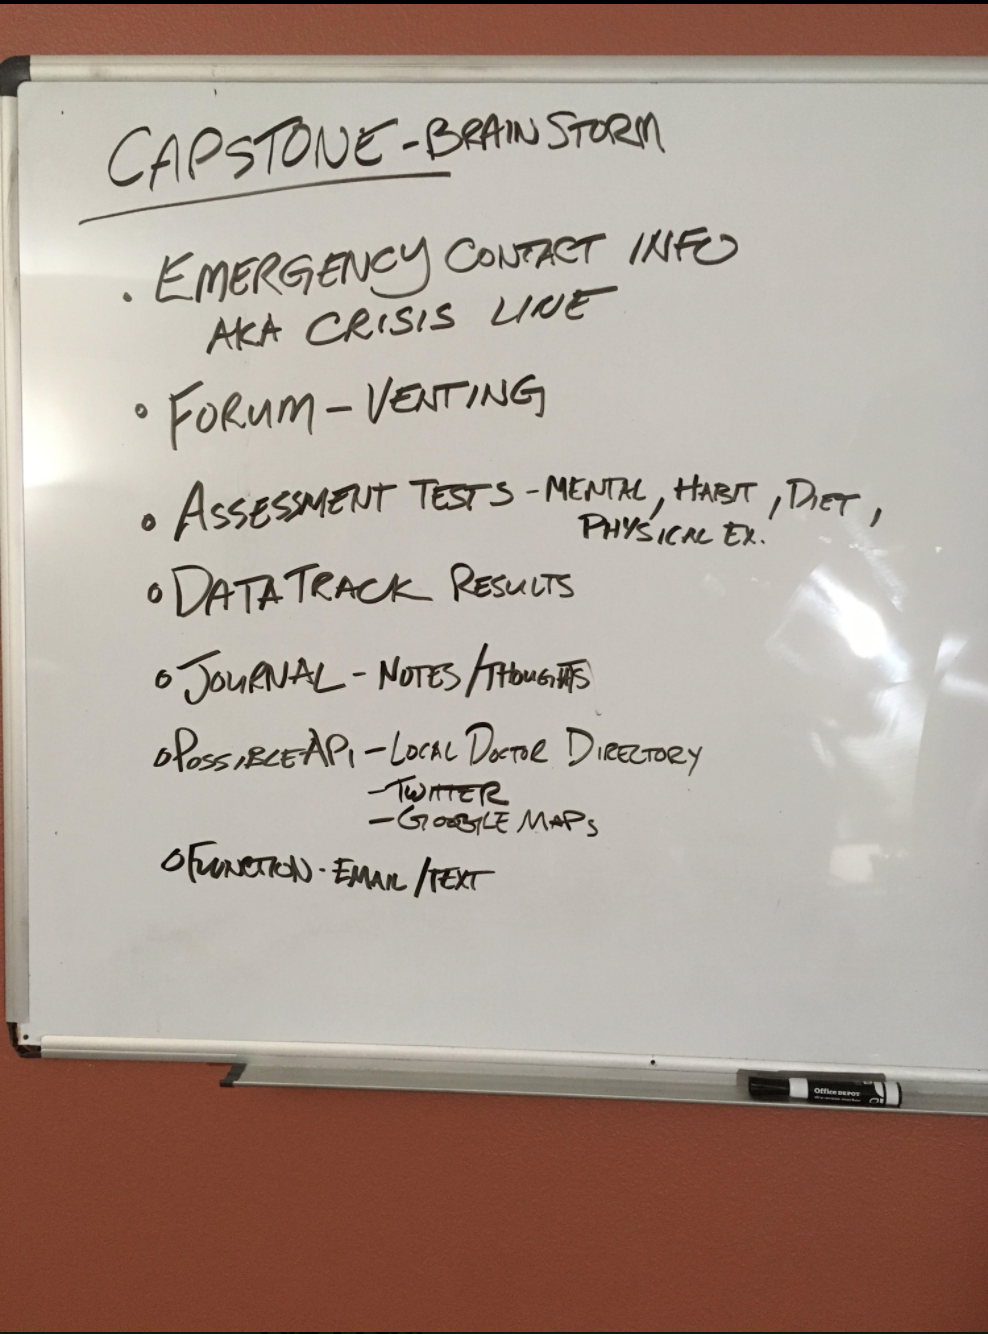 CAPSTONE - BRAINSTORM
• EMERGENCY CONTACT INFO
AKA CRISIS LINE
• FORUM - VENTING
• ASSESSMENT TESTS - MENTAL, HABIT, DIET,
PHYSICAL EX.
• DATA TRACK RESULTS
• JOURNAL - NOTES/THOUGHTS
• POSSIBLE API - LOCAL DOCTOR DIRECTORY
- TWITTER
- GOOGLE MAPS
• FUNCTION - EMAIL/TEXT
Office DEPOT